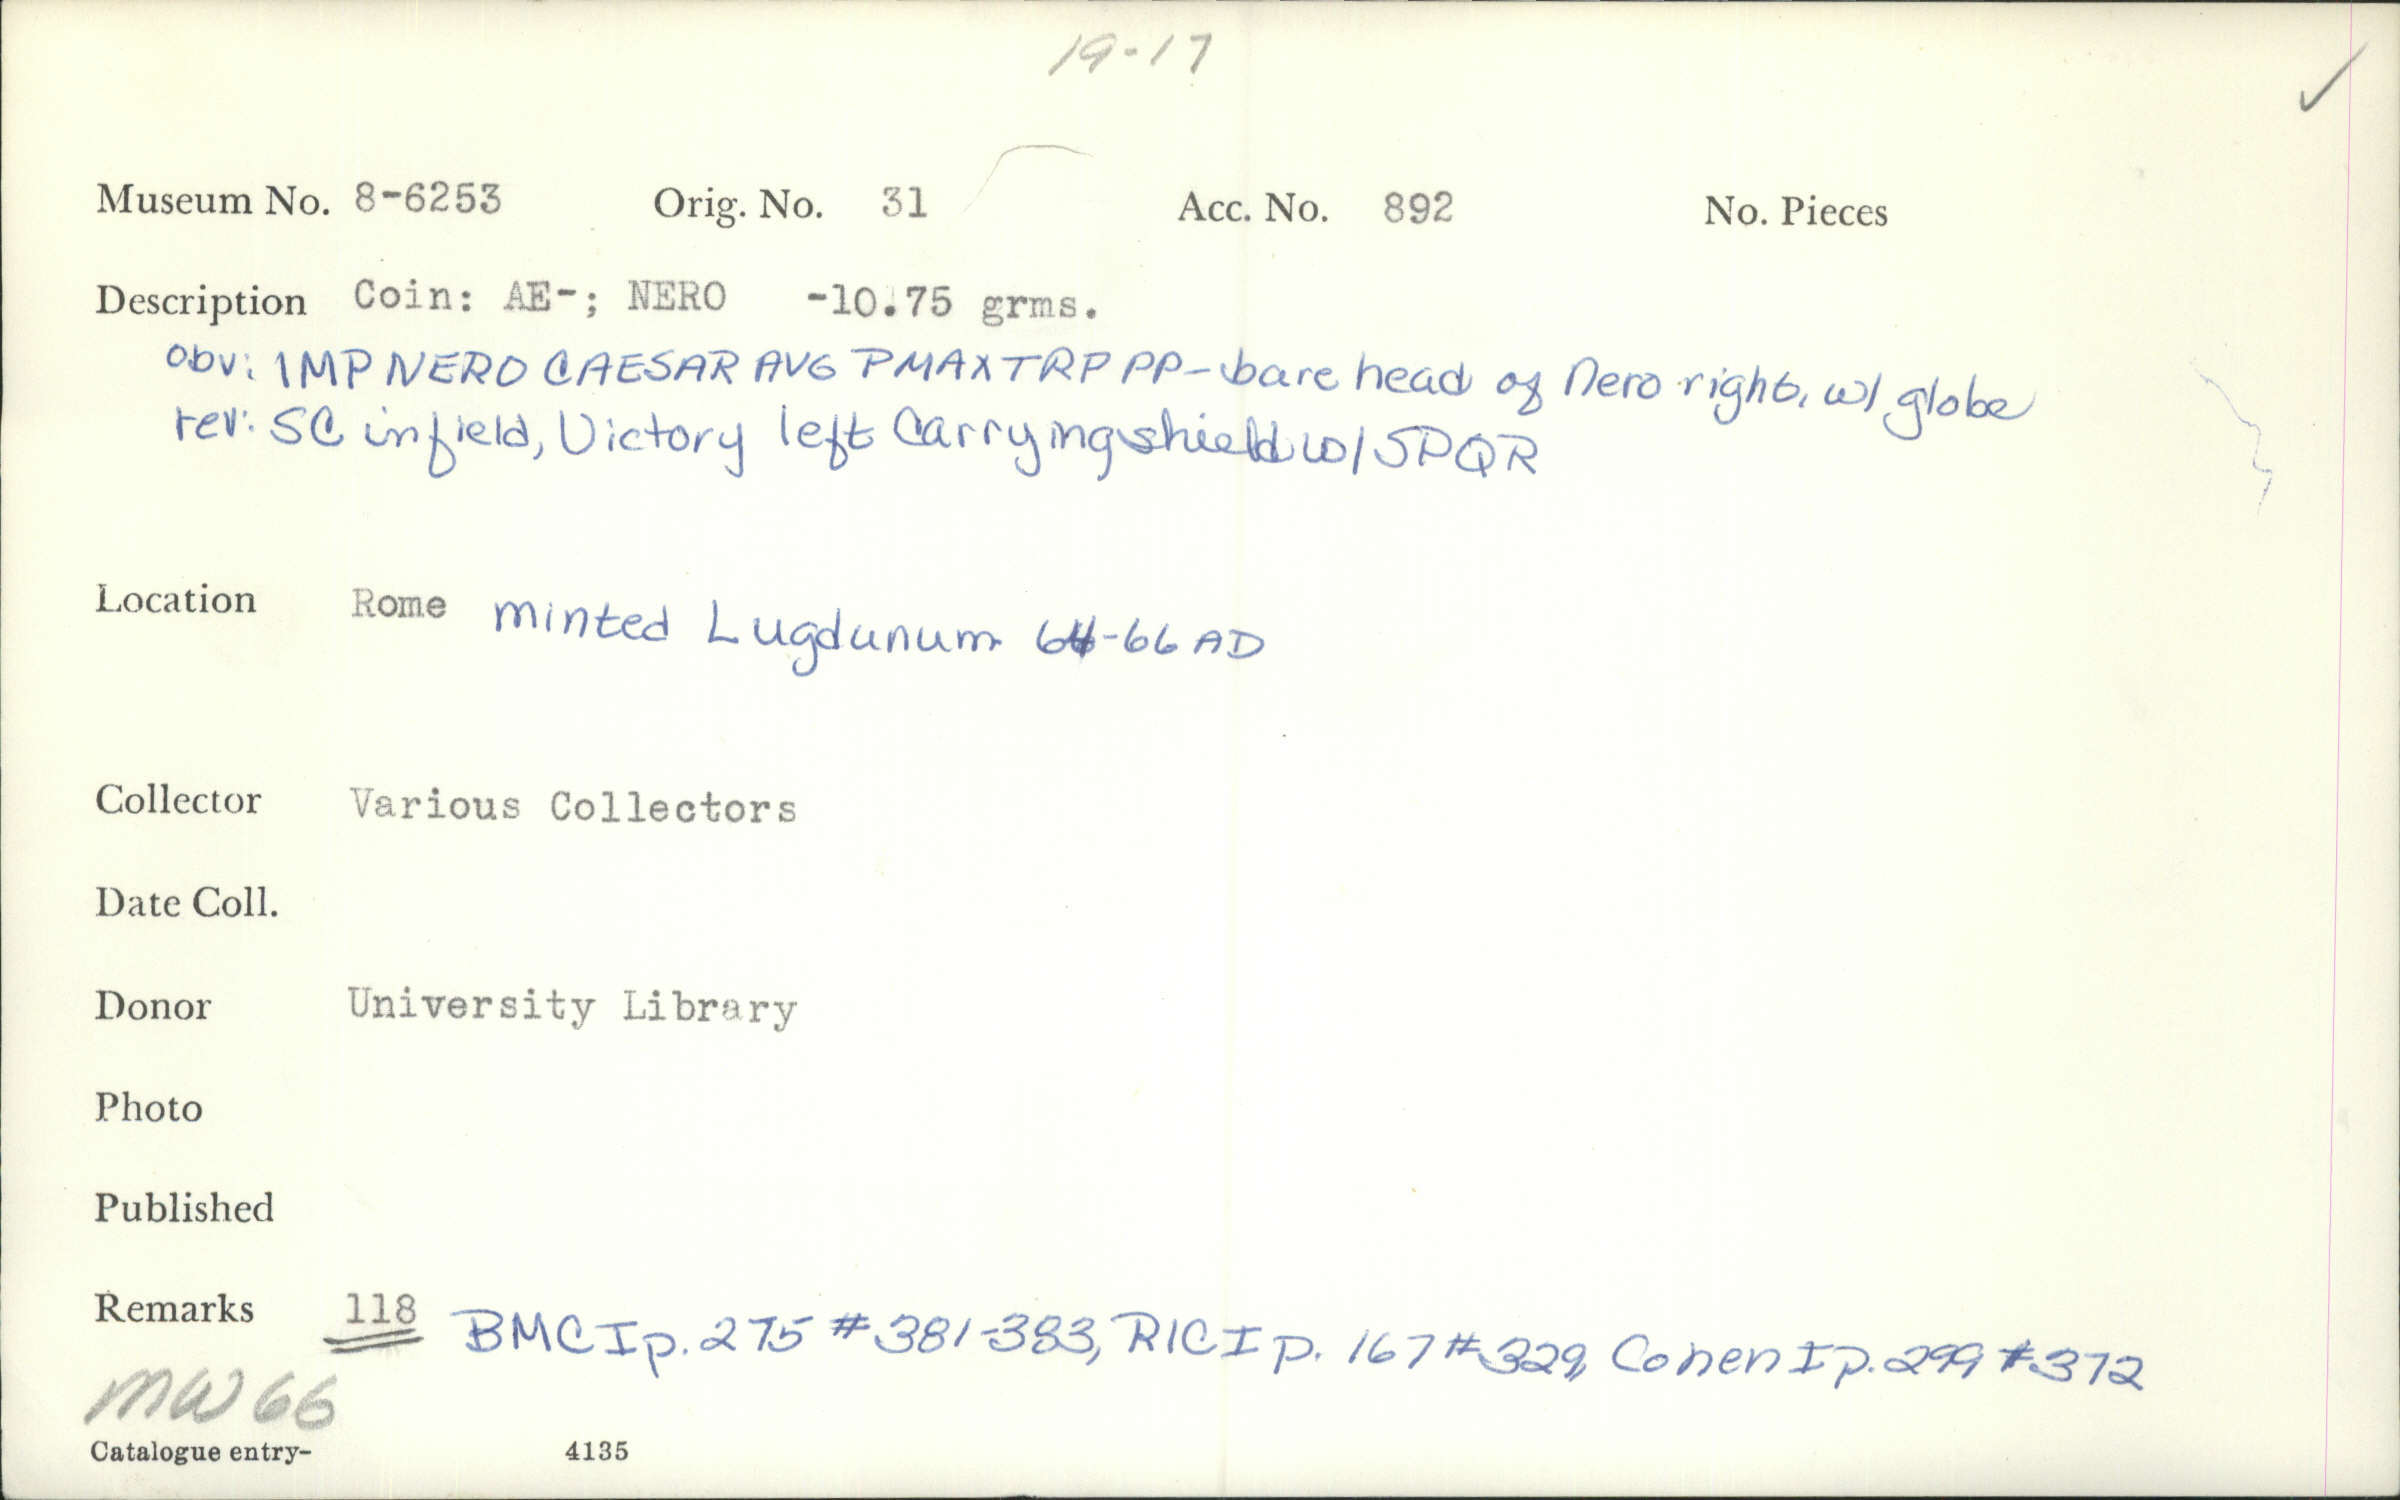 19-17
Museum No. 8-6253 Orig. No. 31 Acc. No. 892 No. Pieces
Description Coin: AE-; NERO -10.75 grms.
obv: IMP NERO CAESAR AVG PMAXTRP PP- bare head of Nero right, w/ globe
rev: SC in field, Victory left carrying shield w/ SPQR
Location Rome minted Lugdunum 64-66 AD
Collector Various Collectors
Date Coll.
Donor University Library
Photo
Published
Remarks 118 BMC I p. 275 # 381-383, RIC I p. 167 # 329, Cohen I p. 299 # 372
MW 66
Catalogue entry- 4135